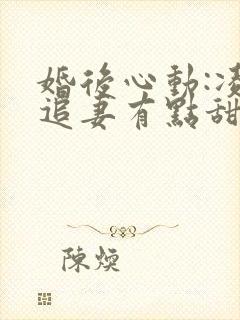 婚後心動:
追妻有點甜
陳煥